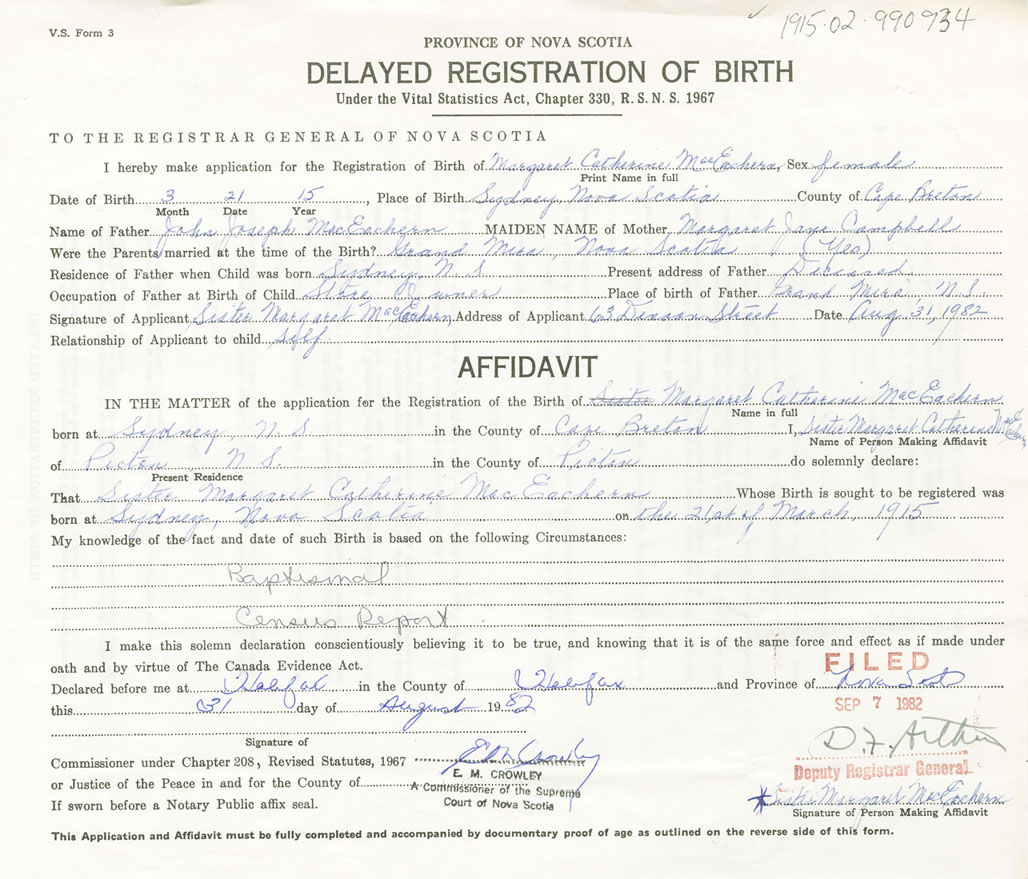 V.S. Form 3
1915-02-990934
PROVINCE OF NOVA SCOTIA
DELAYED REGISTRATION OF BIRTH
Under the Vital Statistics Act, Chapter 330, R.S.N.S. 1967
TO THE REGISTRAR GENERAL OF NOVA SCOTIA
I hereby make application for the Registration of Birth of Margaret Catherine MacEachern Sex female
Print Name in full
Date of Birth 3 21 15, Place of Birth Sydney, Nova Scotia County of Cape Breton
Month Date Year
Name of Father John Joseph MacEachern MAIDEN NAME of Mother Margaret Jane Campbell
Were the Parents married at the time of the Birth? Grand Mira, Nova Scotia (Yes)
Residence of Father when Child was born Sydney, N.S. Present address of Father Deceased
Occupation of Father at Birth of Child Store Owner Place of birth of Father Grand Mira N.S.
Signature of Applicant Sister Margaret MacEachern Address of Applicant 63 Denoon Street Date Aug 31, 1982
Relationship of Applicant to child self
AFFIDAVIT
IN THE MATTER of the application for the Registration of the Birth of Sister Margaret Catherine MacEachern
Name in full
born at Sydney, N S in the County of Cape Breton I, Sister Margaret Catherine MacEachern
Name of Person Making Affidavit
of Pictou N S. in the County of Pictou do solemnly declare:
Present Residence
That Sister Margaret Catherine MacEachern Whose Birth is sought to be registered was
born at Sydney, Nova Scotia on the 21st of March, 1915
My knowledge of the fact and date of such Birth is based on the following Circumstances:
Baptismal
Census Report
I make this solemn declaration conscientiously believing it to be true, and knowing that it is of the same force and effect as if made under
oath and by virtue of The Canada Evidence Act.
FILED
Declared before me at Halifax in the County of Halifax and Province of Nova Scotia
SEP 7 1982
this 31 day of August 1982
D.F. Arthur
Signature of
Commissioner under Chapter 208, Revised Statutes, 1967 EM Crowley
E. M. CROWLEY
Deputy Registrar General
or Justice of the Peace in and for the County of
A Commissioner of the Supreme
Court of Nova Scotia
Sister Margaret MacEachern
If sworn before a Notary Public affix seal.
Signature of Person Making Affidavit
This Application and Affidavit must be fully completed and accompanied by documentary proof of age as outlined on the reverse side of this form.